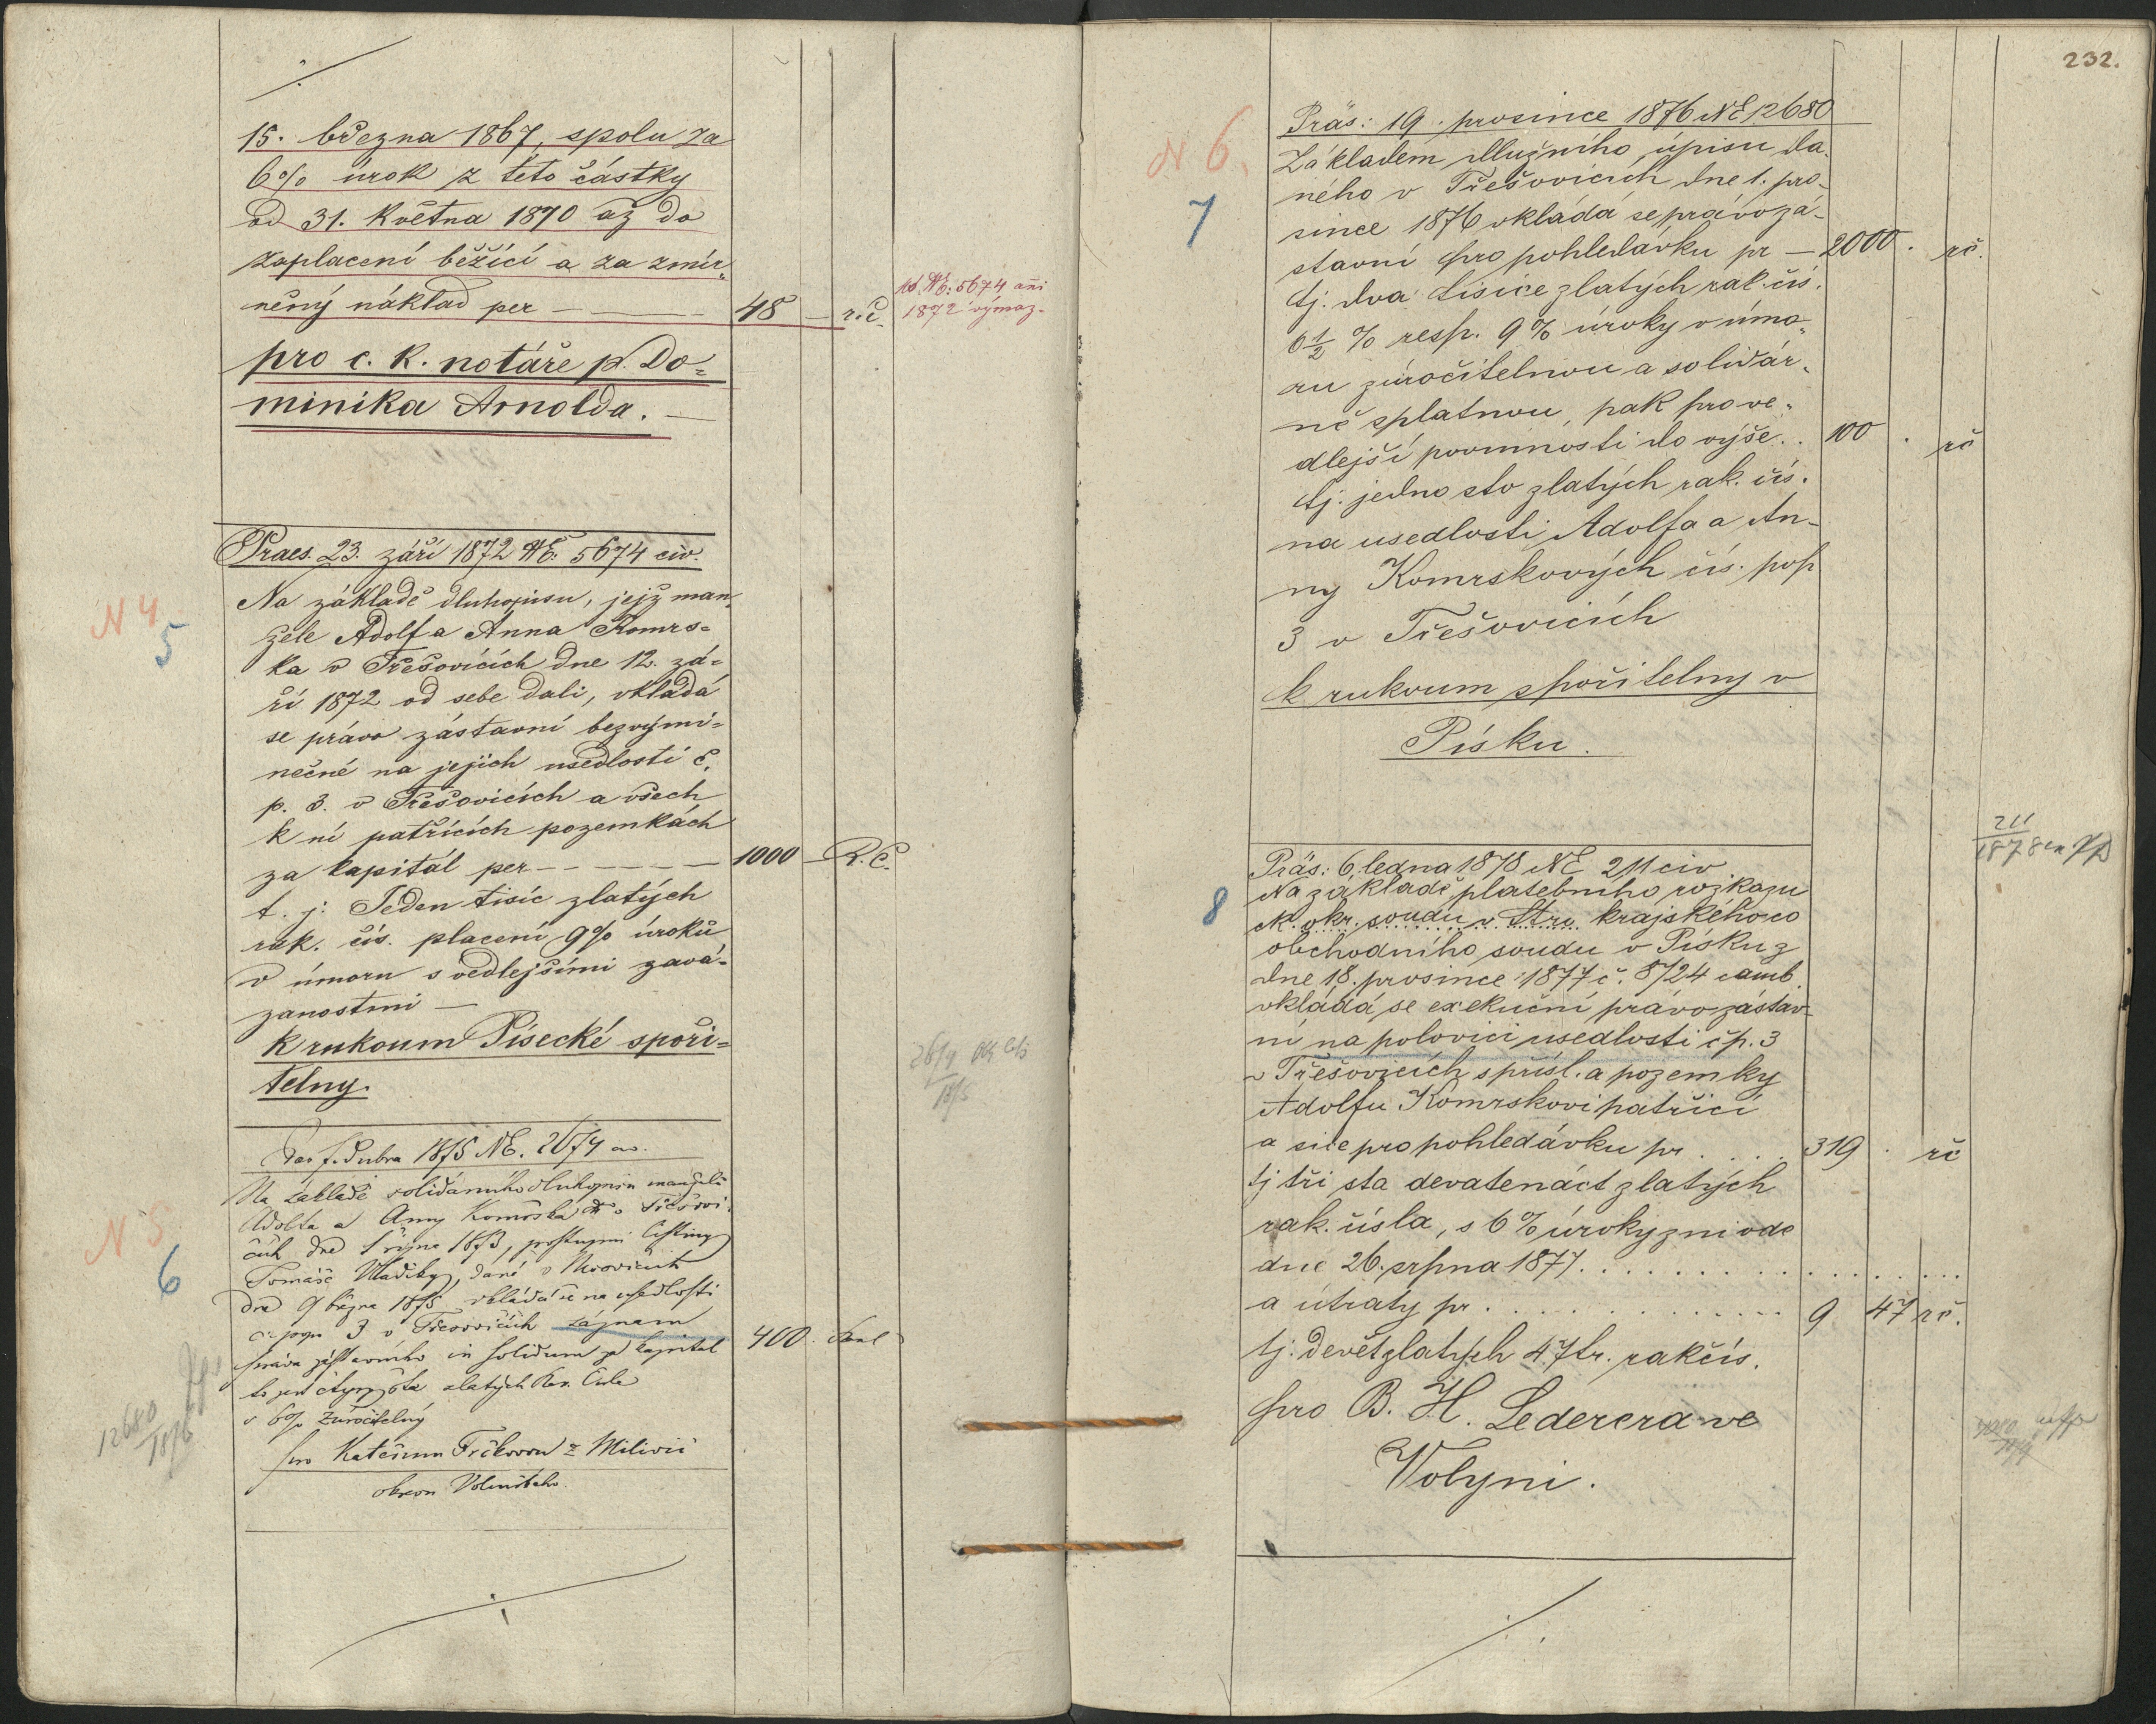 15. března 1867, spolu za
6% úrok z této částky
od 31. Května 1870 až do
zaplacení běžící a za zmír„
něný náklad per — 48 — r.č.
ad NE: 5674 ani
1872 výmaz.
pro c. k. notáře p. Do=
minika Arnolda. —
Praes. 23. září 1872 NE: 5674 civ.
N 4.
5
Na základě dluhopisu, jejž man„
želé Adolf a Anna Komrs=
ka v Třešovicích dne 12. zá=
ří 1872 od sebe dali, vkládá
se právo zástavní bezvýmí=
nečné na jejich usedlosti č.
p. 3. v Třešovicích a všech
k ní patřících pozemkách
za kapitál per — 1000 — R.Č.
t. j: Jeden tisíc zlatých
rak. čís. placení 9% úroků
v úmoru s vedlejšími zavá=
zanostmi —
k rukoum Písecké spoři=
telny.
dubna 1875 NE. 2674
N 5
6
Na základě solidárního dluhopisu manželů
Adolfa a Anny Komrska v Třešovi
cích dne října 1873, postupní listiny
Tomáše dané v
dne 9 března 1875 vkládá se na usedlosti
čís pop 3 v Třešovicích záznam
práva zástavního in solidum za kapitál 400.
to jest čtyrysta zlatých Rak. Čísla
s 6% zúročitelný
pro Kateřinu z Milivic
okresu Volyňského.
12680
1876
232.
Präs: 19. prosince 1876 NE 12680
N 6.
7
Základem dlužního úpisu da„
ného v Třešovicích dne 1. pro„
since 1876 vkládá se právo zá„
stavní pro pohledávku pr — 2000 . rč.
tj. dva tisíce zlatých rak. čís.
6½ % resp. 9% úroky v úmo„
ru zúročitelnou a solidár„
ně splatnou, pak pro ve„
dlejší povinnosti do výše . . 100 . rč
tj. jedno sto zlatých rak. čís.
na usedlosti Adolfa a An„
ny Komrskových čís. pop
3 v Třešovicích
k rukoum spořitelny v
Písku.
211
1878
Präs: 6. ledna 1878 NE 211 civ
8
Na základě platebního rozkazu
ck. okr. soudu v Str. krajského co
obchodního soudu v Písku z
dne 18. prosince 1877 č. 8724 camb.
vkládá se exekuční právo zástav„
ní na polovici usedlosti čp. 3
v Třešovicích s přísl. a pozemky
Adolfu Komrskovi patřící
a sice pro pohledávku pr . . . . 319 . rč
tj tři sta devatenáct zlatých
rak. čísla, s 6% úroky z ní ode
dne 26. srpna 1877. . . . . . . . . . . .
a útraty pr . . . . . . . . . 9 47 rč.
tj. devět zlatých 47 kr. rak čís.
pro B. H. Lederera ve
Volyni.